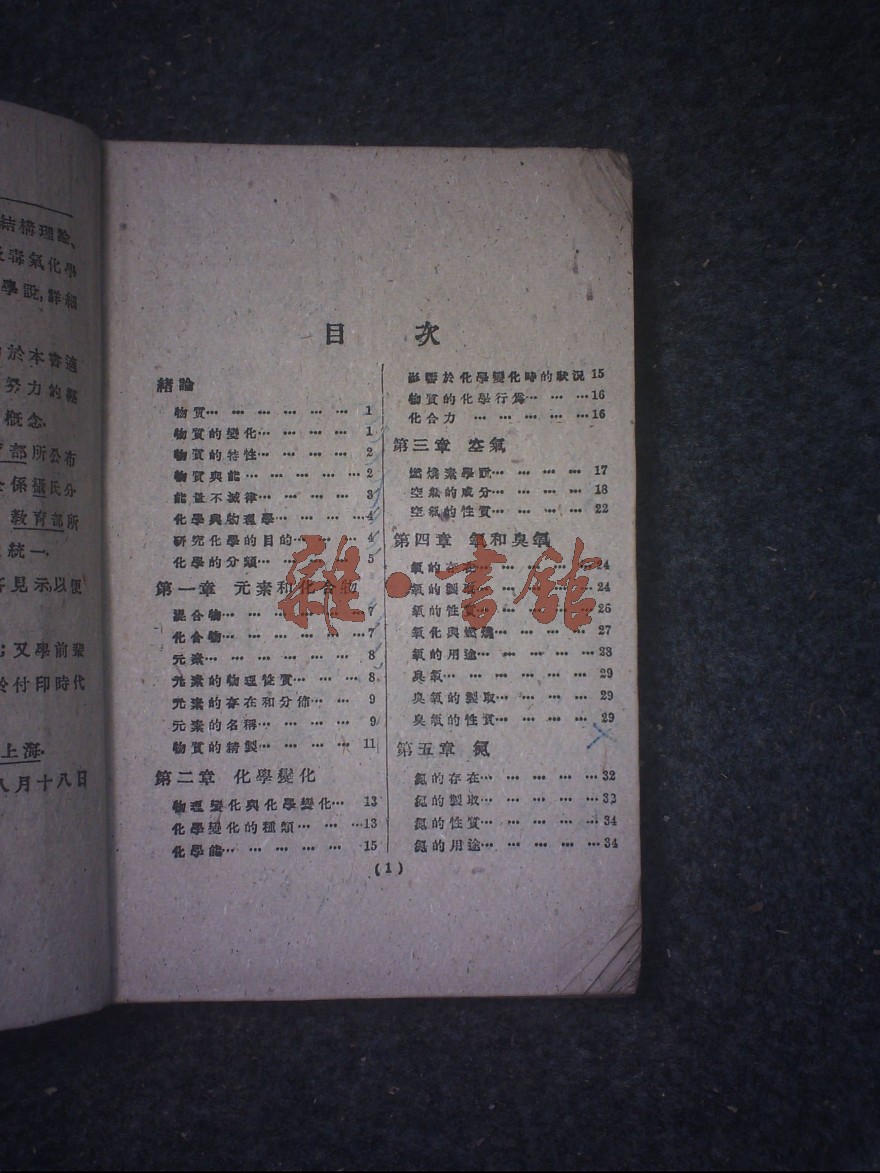 結構理論、
毒氣化學
學說,詳細
於本書適
努力的
概念.
部所公布
係攝氏分
教育部所
統一.
見示,以便
;又學前輩
於付印時代
上海.
八月十八日
目 次
緒論
物質… … … … … … 1
物質的變化… … … … 1
物質的特性… … … … 2
物質與能… … … … … 2
能量不滅律… … … … 3
化學與物理學… … … 4
研究化學的目的… … 4
化學的分類… … … … 5
第一章 元素和化合物
混合物… … … … … 7
化合物… … … … … 7
元素… … … … … … 8
元素的物理性質… … 8
元素的存在和分佈… … 9
元素的名稱… … … … 9
物質的精製… … … … 11
第二章 化學變化
物理變化與化學變化… 13
化學變化的種類… … …13
化學能… … … … … 15
影響於化學變化時的狀況 15
物質的化學行為… … …16
化合力 … … … …16
第三章 空氣
燃燒素學說… … … … 17
空氣的成分… … … … 18
空氣的性質… … … … 22
第四章 氧和臭氧
氧的存在… … … … …24
氧的製取… … … … …24
氧的性質… … … … …26
氧化與燃燒… … … … 27
氧的用途… … … … …28
臭氧… … … … … … 29
臭氧的製取… … … … 29
臭氧的性質… … … … 29
第五章 氫
氫的存在… … … … … 32
氫的製取… … … … …32
氫的性質… … … … … 34
氫的用途… … … … …34
(1)
雜·書館